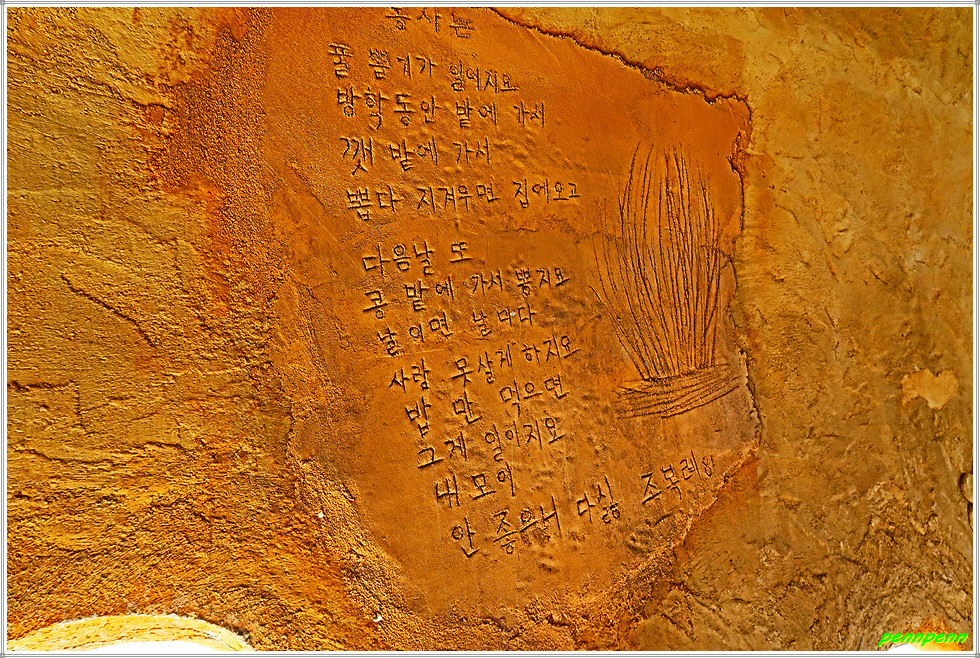 농사는
풀 뽑기가 일이지요
방학동안 밭에 가서
깻 밭에 가서
뽑다 지겨우면 집에오고
다음날 또
콩 밭에 가서 뽕지요
날이면 날마다
사람 못살게 하지요
밥 만 먹으면
그게 일이지요
내 모이
안 좋은니 다싫
pennpenn